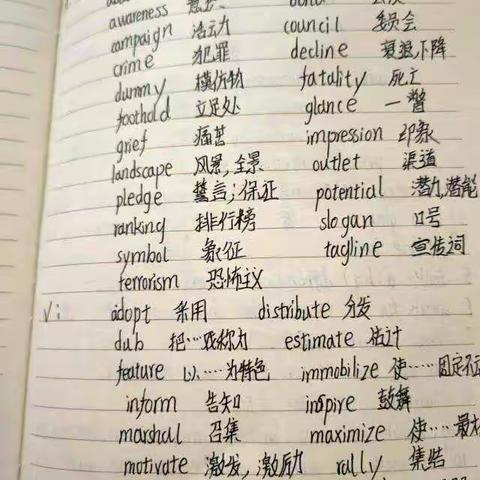 awareness 意识
campaign 活动 council 委员会
crime 犯罪 decline 衰退,下降
dummy 模仿物 fatality 死亡
foothold 立足处 glance 一瞥
grief 痛苦 impression 印象
landscape 风景,全景 outlet 渠道
pledge 誓言;保证 potential 潜力,潜能
ranking 排行榜 slogan 口号
symbol 象征 tagline 宣传词
terrorism 恐怖主义
Vi: adopt 采用 distribute 分发
dub 把…戏称为 estimate 估计
feature 以……为特色 immobilize 使……固定不
inform 告知 inspire 鼓舞
marshal 召集 maximize 使…最
motivate 激发,激励 rally 集结